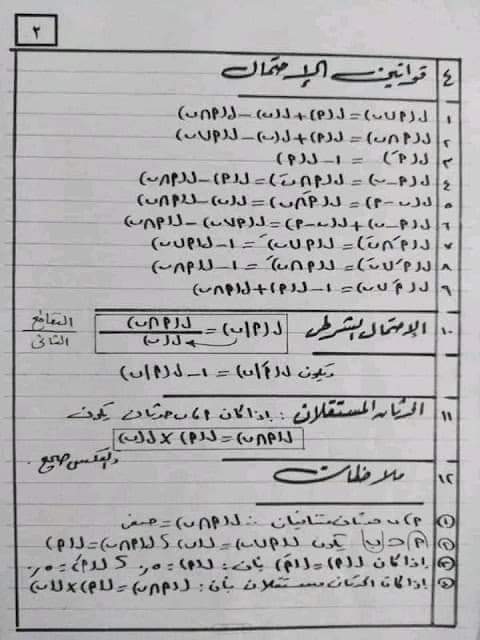 ٢
٤ قوانين الإحتمال
١ ل(P∪ب) = ل(P) + ل(ب) - ل(P∩ب)
٢ ل(P∩ب) = ل(P) + ل(ب) - ل(P∪ب)
٣ ل(Ṕ) = ١ - ل(P)
٤ ل(P-ب) = ل(P∩ب́) = ل(P) - ل(P∩ب)
٥ ل(ب-P) = ل(Ṕ∩ب) = ل(ب) - ل(P∩ب)
٦ ل(P-ب) + ل(ب-P) = ل(P∪ب) - ل(P∩ب)
٧ ل(Ṕ∩ب́) = ل(P∪ب)́ = ١ - ل(P∪ب)
٨ ل(Ṕ∪ب́) = ل(P∩ب)́ = ١ - ل(P∩ب)
٩ ل(Ṕ∪ب) = ١ - ل(P) + ل(P∩ب)
١٠ الإحتمال الشرطى ل(P|ب) = ل(P∩ب) / ل(ب) التقاطع / الثانى
ويكون ل(Ṕ|ب) = ١ - ل(P|ب)
١١ الحدثان المستقلان : إذا كان P، ب حدثان يكون
ل(P∩ب) = ل(P) × ل(ب)
والعكس صحيح .
١٢ ملاحظات
① P، ب حدثان متنافيان : ل(P∩ب) = صفر
② P ⊂ ب يكون ل(P∪ب) = ل(ب) ، ل(P∩ب) = ل(P)
③ إذا كان ل(P) = ل(Ṕ) فإن : ل(P) = ٠,٥ ، ل(Ṕ) = ٠,٥
إذا كان الحدثان مستقلان فإن : ل(P∩ب) = ل(P) × ل(ب)